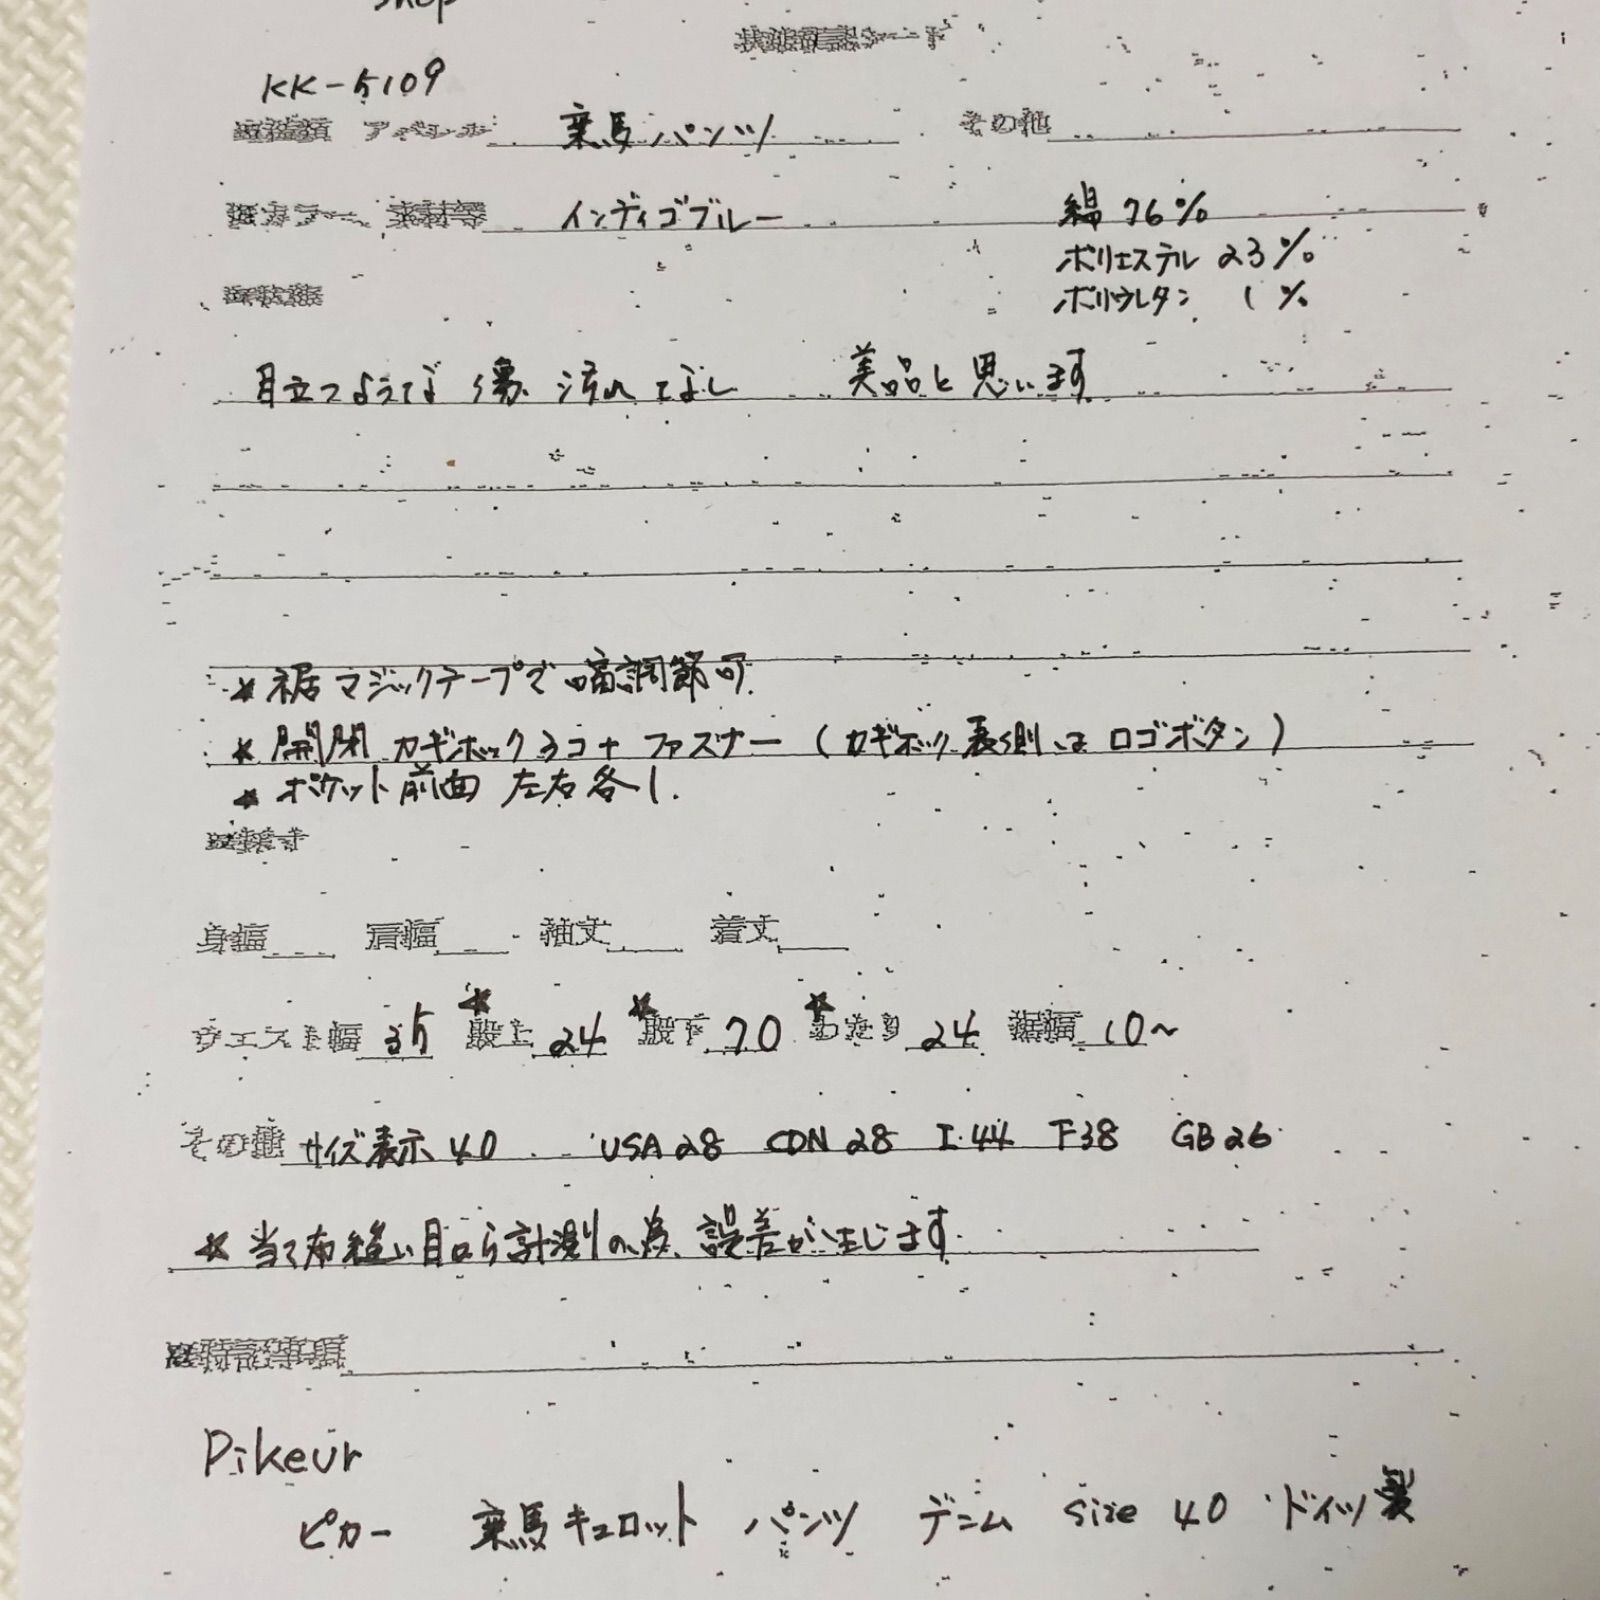 shop
状態確認シート
KK-5109
アパレル 乗馬パンツ その他
カラー、素材等 インディゴブルー 綿 76%
ポリエステル 23%
ポリウレタン 1%
目立つような傷、汚れてなし 美品と思います
★裾マジックテープで幅調節可.
★開閉 カギホック3コ+ファスナー (カギホック表側はロゴボタン)
★ポケット前面 左右各1.
採寸
身幅 肩幅 袖丈 着丈
ウエスト幅 35 ★股上 24 ★股下 70 ★わたり 24 裾幅 10~
その他 サイズ表示 40 USA28 CDN28 I.44 F38 GB26
★当て布縫い目から計測の為、誤差が生じます.
特記事項
Pikeur
ピカー 乗馬キュロット パンツ デニム size 40 ドイツ製